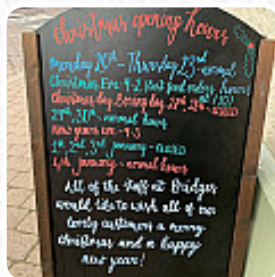 Christmas opening hours
Monday 20th - Thursday 23rd - normal hours
Christmas Eve - 9-2
Christmas day, Boxing day, 27th, 28th - CLOSED
29th, 30th - normal hours
New years eve - 9-3
1st, 2nd, 3rd, January - CLOSED
4th January - normal hours
All of the staff at Bridges
would like to wish all of our
lovely customers a merry
christmas and a happy
new year!